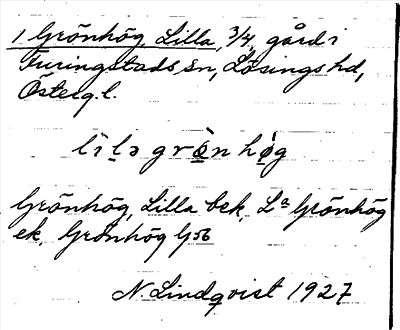 1 Grönhög, Lilla, 3/4, gård i
Furingstads sn, Lösings hd,
Österg. l.
lìlə grö̀n hög
Grönhög, Lilla bek, La Grönhög
ek Grönhög G56
N. Lindqvist 1927